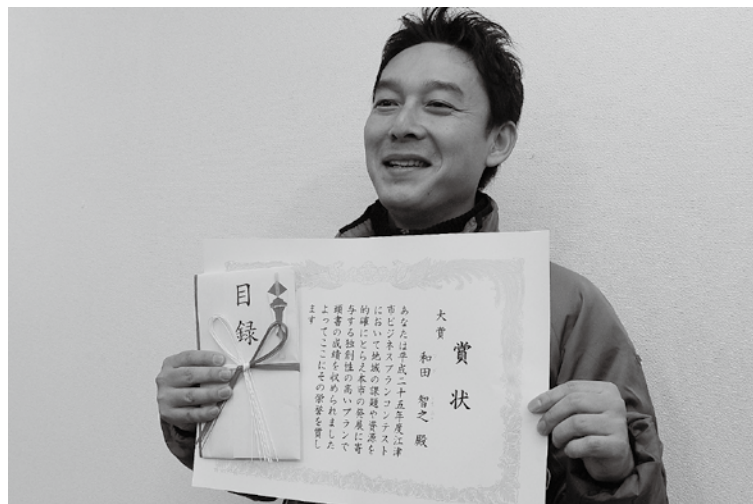 賞状
大賞
和田 智之 殿
あなたは平成二十五年度江津
市ビジネスプランコンテスト
において地域の課題や資源を
的確にとらえ本市の発展に寄
与する独創性の高いプランで
頭書の成績を収められました
よってここにその栄誉を賞し
ます
目録